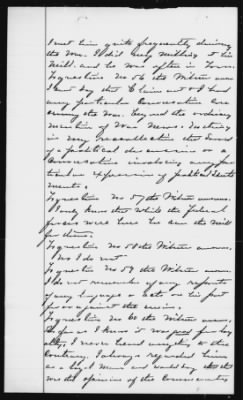 I met him quite frequently during
the war. I did my milling at his
Mill. and he was often in Town.
To question No 56 the Witness answers
I know by the Claimant I had
any particular conversation
during the War. beyond the ordinary
mention of War News. Nothing
in my recollection that
of a political discussion or a
Conversation involving any par
ticular expression of political senti
ments.
To question No 57 the Witness answers
I only know that while the federal
forces were here he ran the Mill
for them.
To question No 58 the Witness answers.
No I do not
To question No 59 the Witness answers
I do not remember of any reports
of any language or acts on his part
for or against the union.
To question No 60 the Witness answers,
As far as I know it was good for loy
alty, I never heard anything to the
Contrary. I always regarded him
as a loyal man and would say that
was the opinion of the Community